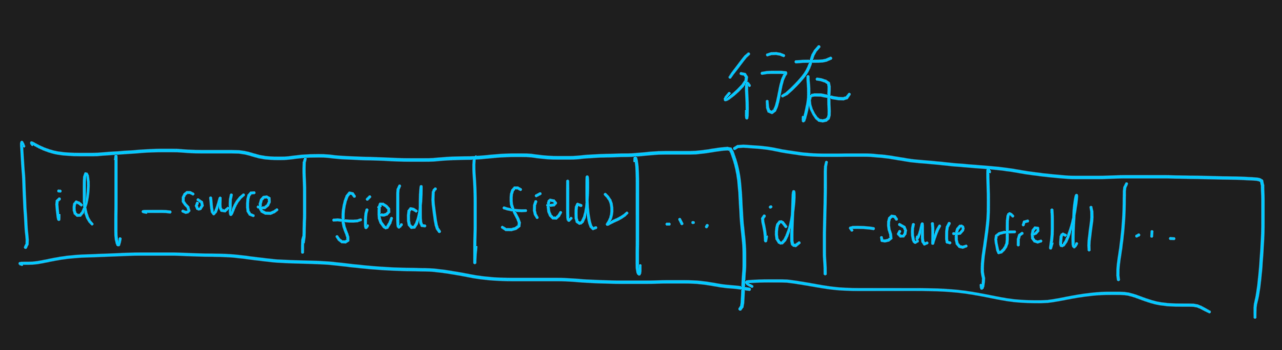 行存
id _source field1 field2 ... id _source field1 ...